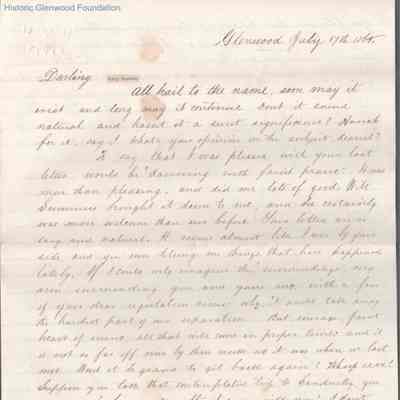 Historic Glenwood Foundation
Glenwood July 17th 186
Darling
All hail to the name, soon may it
exist and long may it continue. Dont it sound
natural and hasnt it a sweet significance? Hurrah
for it, say I. Whats your opinion on the subject dearest?
To say that I was pleased with your last
letter would be damning with faint praise. It was
more than pleasing, and did me lots of good. Will
Summers brought it down to me, and he certainly
was more welcome than ever before. Your letters are so
easy and natural. It seems almost like I was by your
side and you were telling me things that have happened
lately. If I could only imagine the surroundings, very
arm surrounding you and yours me, with a few
of your dear regulation kisses why it would take away
the hardest part of our separation. But courage faint
heart of mine, all that will come in proper time and it
is not so far off now by three weeks as it was when we last
met. Wont it be grand to get back again?
Suppose you take that contemplated trip to